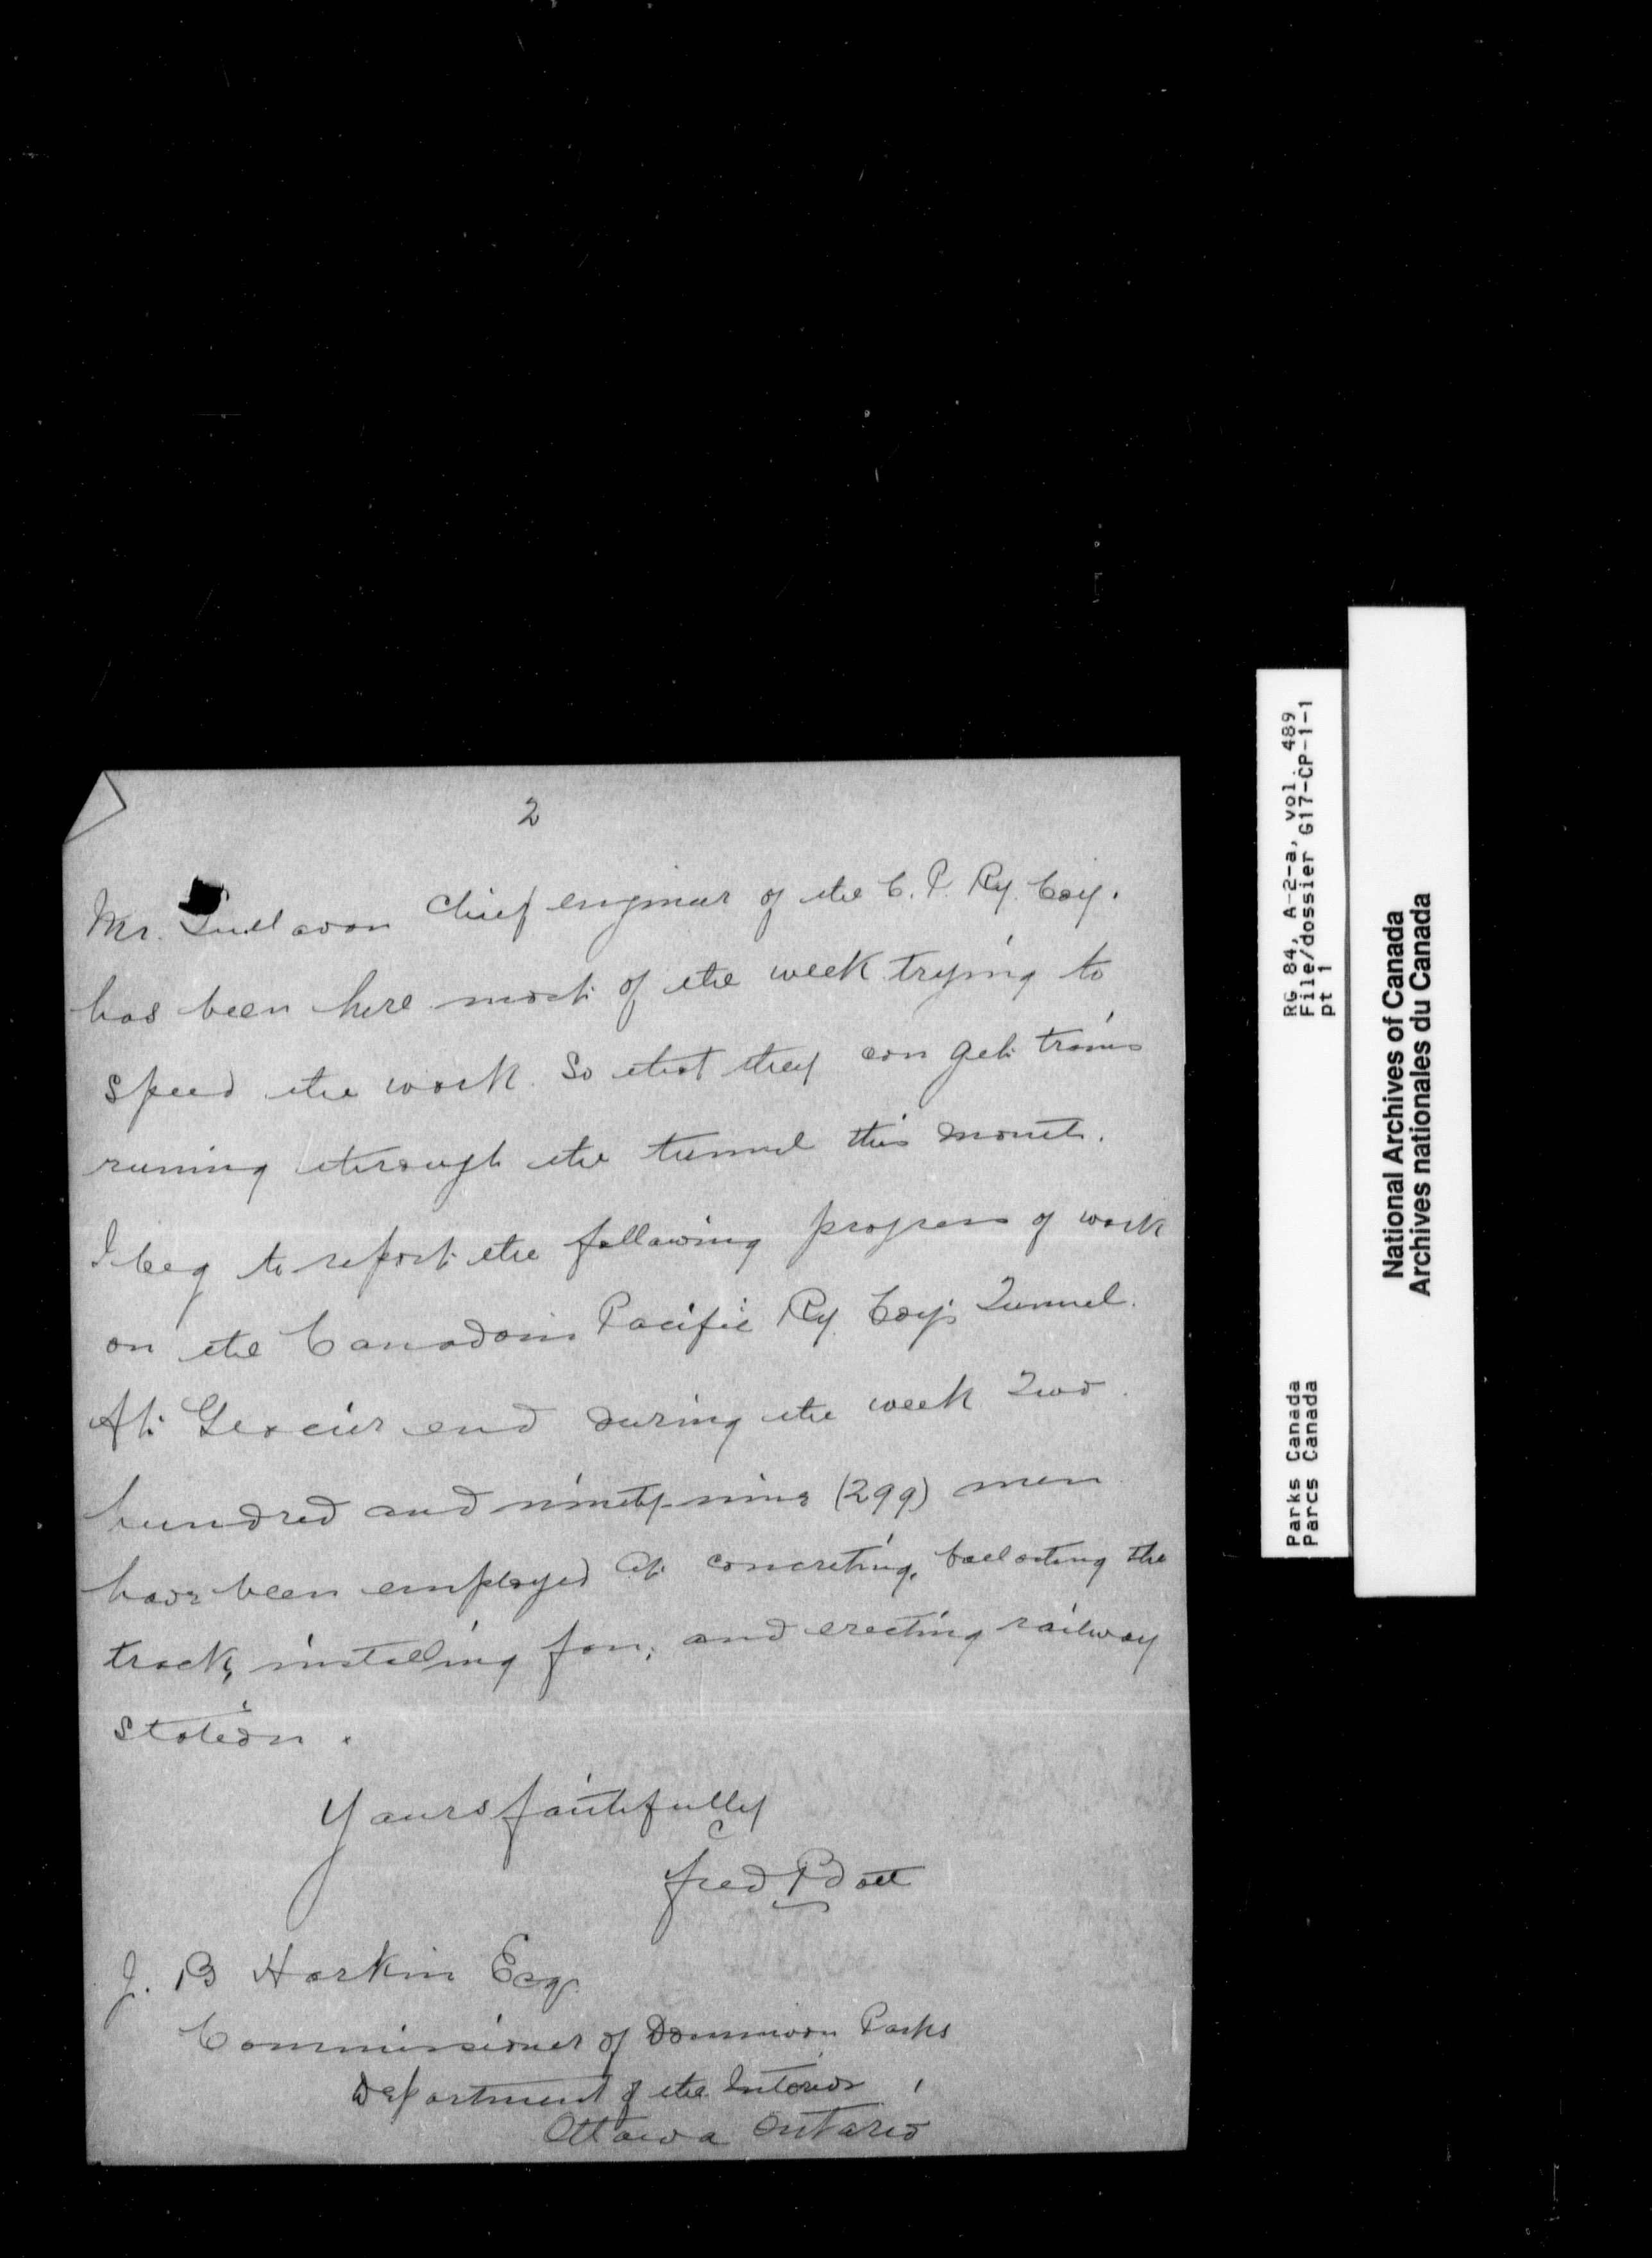 2
Mr. Sullavan Chief engineer of the C. P. Ry. Coy.
has been here most of the week trying to
speed the work so that they can get trains
runing through the tunnel this month.
I beg to report the following progress of work
on the Canadain Pacific Ry. Coy's Tunnel.
At Glacier end during the week Two
hundred and ninety-nine (299) men
have been employed at concreting, ballasting the
track, installing fan, and erecting railway
station.
Yours faithfully
J. B Harkin Esq.
Commissioner of Dominion Parks
Department of the Interior,
Ottawa Ontario
RG 84, A-2-a, vol. 489
File/dossier G17-CP-1-1
pt 1
Parks Canada
Parcs Canada
National Archives of Canada
Archives nationales du Canada